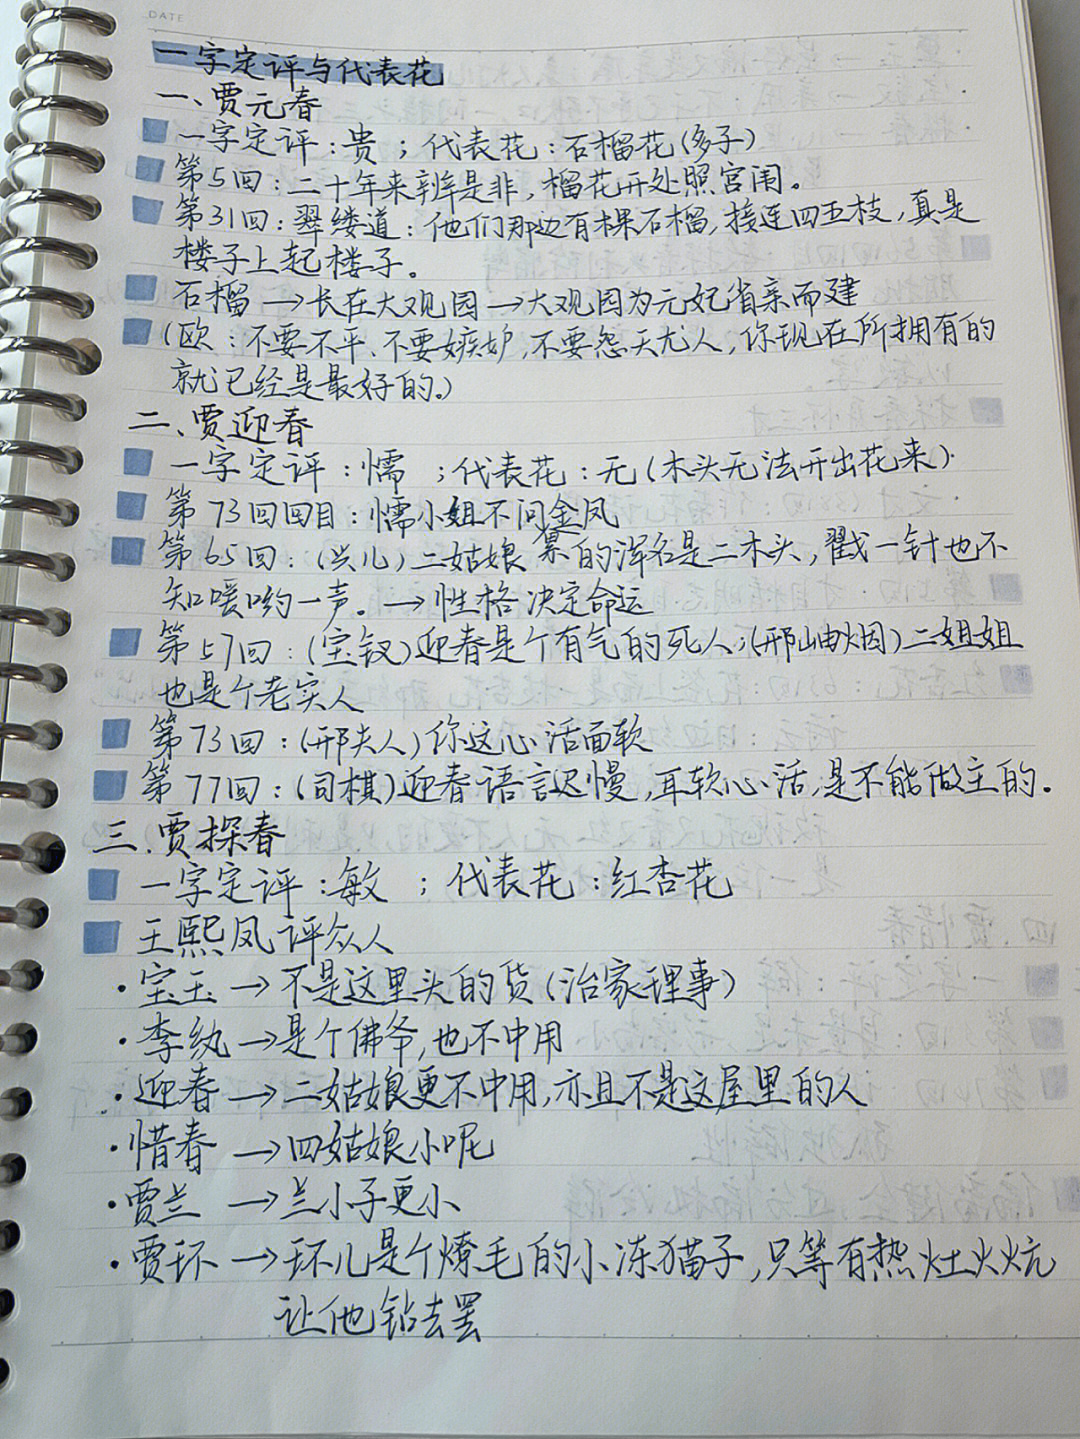 DATE
一字定评与代表花
一、贾元春
一字定评：贵；代表花：石榴花(多子)
第5回：二十年来辨是非，榴花开处照宫闱。
第31回：翠缕道：他们那边有棵石榴，接连四五枝，真是
楼子上起楼子。
石榴→长在大观园→大观园为元妃省亲而建
(欧：不要不平、不要嫉妒，不要怨天尤人，你现在所拥有的
就已经是最好的。)
二、贾迎春
一字定评：懦；代表花：无(木头无法开出花来)
第73回回目：懦小姐不问累金凤
第65回：(兴儿)二姑娘的浑名是二木头，戳一针也不
知嗳哟一声。→性格决定命运
第57回：(宝钗)迎春是个有气的死人；(邢岫烟)二姐姐
也是个老实人
第73回：(邢夫人)你这心活面软
第77回：(司棋)迎春语言迟慢，耳软心活，是不能做主的。
三.贾探春
一字定评：敏；代表花：红杏花
王熙凤评众人
·宝玉→不是这里头的货(治家理事)
·李纨→是个佛爷，也不中用
·迎春→二姑娘更不中用，亦且不是这屋里的人
·惜春→四姑娘小呢
·贾兰→兰小子更小
·贾环→环儿是个燎毛的小冻猫子，只等有热灶火炕
让他钻去罢